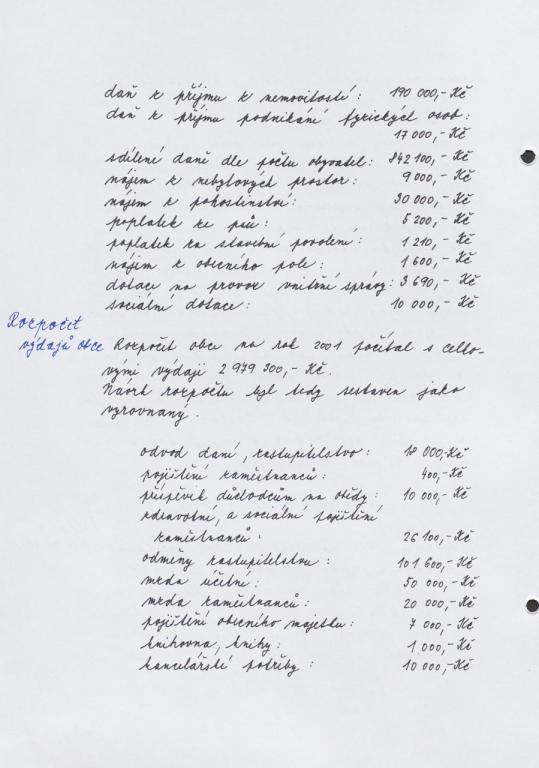 daň z příjmu z nemovitostí: 190 000,- Kč
daň z příjmu podnikání fyzických osob:
17 000,- Kč
sdílení daně dle počtu obyvatel: 842 100,- Kč
nájem z nebytových prostor: 9 000,- Kč
nájem z pohostinství: 30 000,- Kč
poplatek ze psů: 5 200,- Kč
poplatek za stavební povolení: 1 210,- Kč
nájem z obecního pole: 1 600,- Kč
dotace na provoz vnitřní správy: 3 690,- Kč
sociální dotace: 10 000,- Kč
Rozpočet
výdajů obce
Rozpočet obce na rok 2001 počítal s celko-
vými výdaji 2 979 300,- Kč.
Návrh rozpočtu byl tedy sestaven jako
vyrovnaný.
odvod daní, zastupitelstvo: 18 000,-Kč
pojištění zaměstnanců: 400,- Kč
příspěvek důchodcům na obědy: 10 000,- Kč
zdravotní, a sociální pojištění
zaměstnanců: 26 100,- Kč
odměny zastupitelstvu: 101 600,- Kč
mzda účetní: 50 000,- Kč
mzda zaměstnanců: 20 000,- Kč
pojištění obecního majetku: 7 000,- Kč
knihovna, knihy: 1 000,- Kč
kancelářské potřeby: 10 000,- Kč